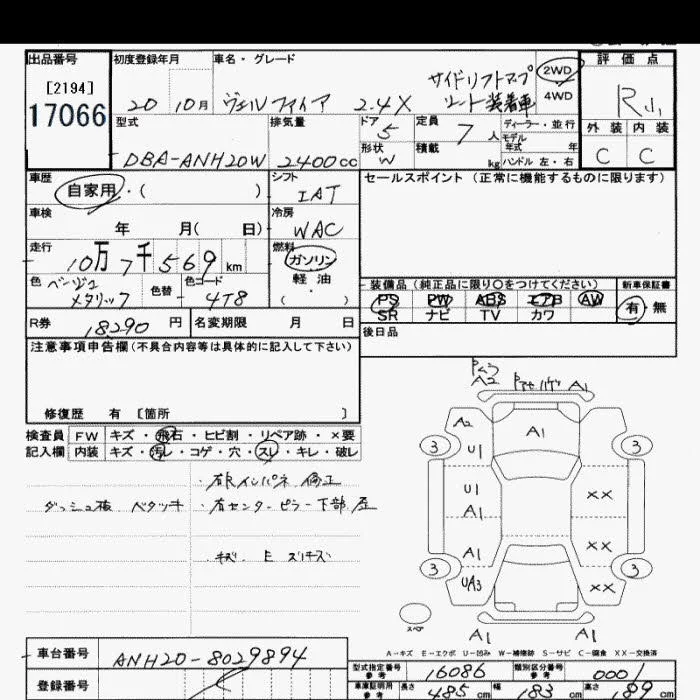 出品番号
[2194]
17066
初度登録年月
20 10月
車名・グレード
ヴェルファイア 2.4X
サイドリフトアップ
シート装着車
2WD
4WD
評価点
R
外装 内装
C C
型式
DBA-ANH20W
排気量
2400cc
ドア
5
形状
W
定員
7人
積載
kg
ディーラー・並行
モデル
年式 年
ハンドル 左・右
車歴
自家用・( )
シフト
IAT
セールスポイント (正常に機能するものに限ります)
車検
年 月( 日)
冷房
WAC
走行
10万7千569km
燃料
ガソリン
軽油
( ・ )
色
ベージュ
メタリック
色替
色コード
4T8
装備品(純正品に限り○をつけてください)
PS PW ABS エアB AW
SR ナビ TV カワ
新車保証書
有・無
R券
18290円
名変期限 月 日
後日品
注意事項申告欄(不具合内容等は具体的に記入して下さい)
修復歴 有 [箇所 ]
検査員
記入欄
FW キズ・飛石・ヒビ割・リペア跡・×要
内装 キズ・汚レ・コゲ・穴・スレ・キレ・破レ
・右Rインパネ 修正
ダッシュ板 ベタツキ
・右センターピラー下部 歪
・キズ E スリキズ
A2
A1
A2
U1
A1
3
3
U1
A1
××
A1
××
3
3
UA3
××
スペア
A1
A1
A-キズ E-エクボ U-凹み W-補修跡 S-サビ C-腐食 XX-交換済
車台番号
ANH20-8029894
登録番号
型式指定番号
参考
16086
類別区分番号
参考
0001
車庫証明用
参考
長さ
485cm
幅
183cm
高さ
cm